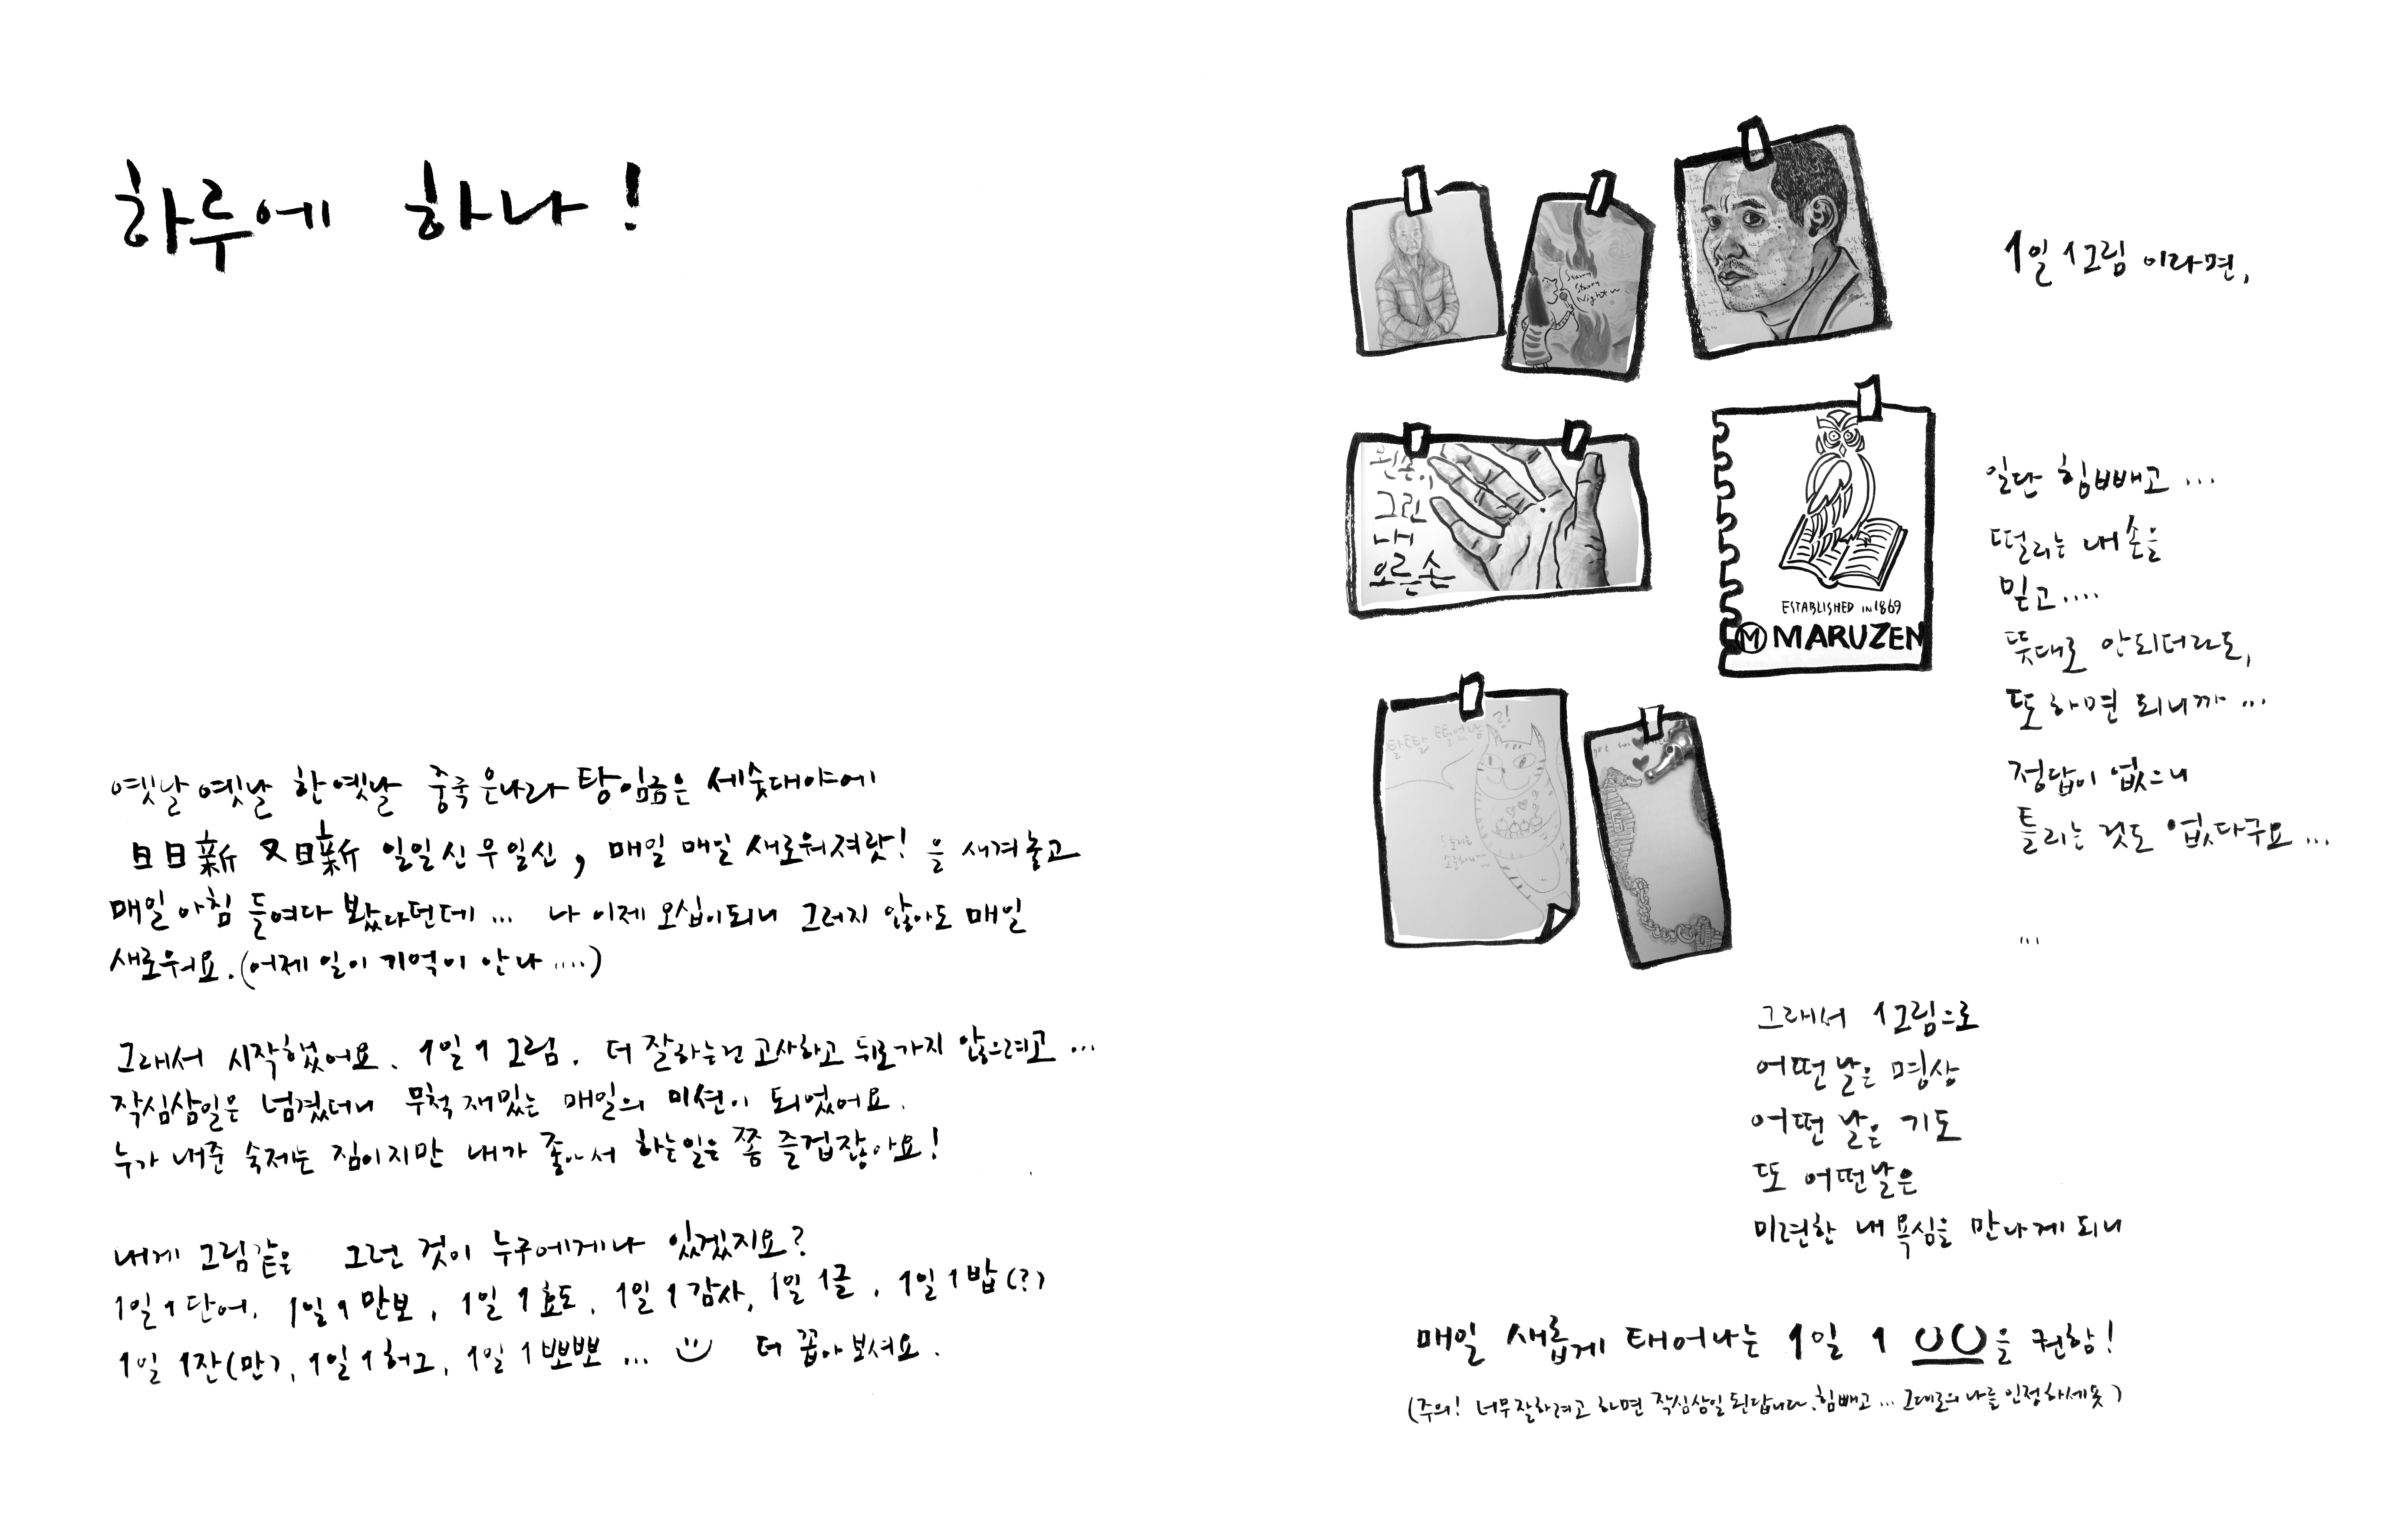 하루에 하나!
옛날 옛날 한 옛날 중국 은나라 탕임금은 세숫대야에
日日新 又日新 일일신우일신, 매일 매일 새로워져랏! 을 새겨놓고
매일 아침 들여다 봤다던데... 나 이제 오십이되니 그러지 않아도 매일
새로워요.(어제 일이 기억이 안나....)
그래서 시작했어요. 1일 1 그림. 더 잘하는건 고사하고 뒤로가지 않으려고...
작심삼일은 넘겼더니 무척 재밌는 매일의 미션이 되었어요.
누가 내준 숙제는 짐이지만 내가 좋아서 하는일은 쫌 즐겁잖아요!
내게 그림같은 그런 것이 누구에게나 있겠지요?
1일 1 단어, 1일 1 만보, 1일 1 효도, 1일 1 감사, 1일 1글, 1일 1 밥(?)
1일 1잔(만), 1일 1 허그, 1일 1 뽀뽀... 더 꼽아 보셔요.
Starry
Starry
Night
왼손이
그린
내
오른손
ESTABLISHED IN 1869
M MARUZEN
1일 1그림 이라면,
일단 힘빼고...
떨리는 내 손을
믿고....
뜻대로 안되더라도,
또 하면 되니까...
정답이 없으니
틀리는 것도 없다구요...
...
그래서 1그림으로
어떤 날은 명상
어떤 날은 기도
또 어떤날은
미련한 내 욕심을 만나게 되니
매일 새롭게 태어나는 1일 1 ㅇㅇ을 권함!
(주의! 너무잘하려고 하면 작심삼일 된답니다. 힘빼고... 그대로의 나를 인정하세욧)